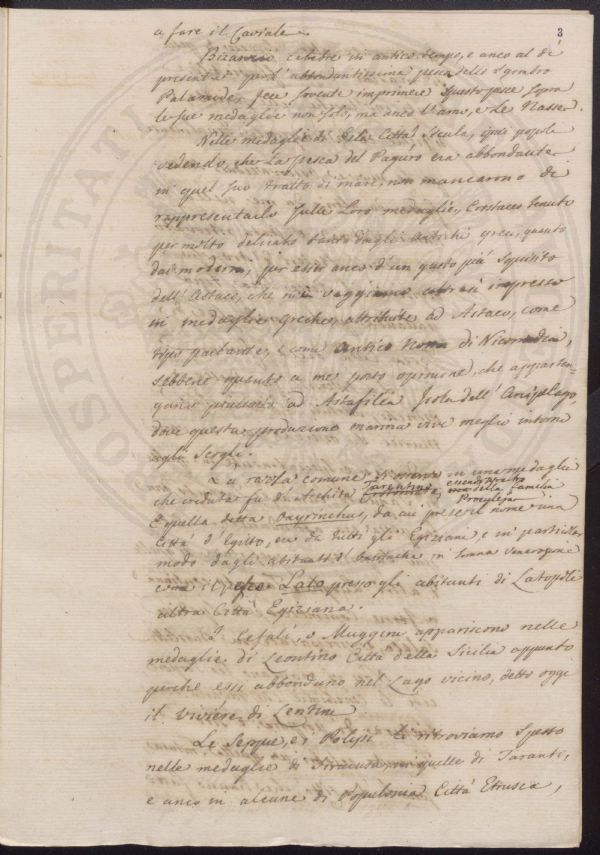 3
a fare il Caviale.
Bizanzio celebre in antico tempo, e anco al dì
presente per l'abbondantissima pesca dello Sgombro
Palamide, fece sovente imprimere questo pesce sopra
le sue medaglie non solo, ma anco l'amo, e le Nasse.
Nelle medaglie di della Città Sicula, quei popoli
vedendo, che la pesca del Paguro era abbondante
in quel suo tratto di mare, non mancarono di
rappresentarlo sulle Loro medaglie, Crostaceo tenuto
per molto delicato tanto dagli Antichi greci, quanto
dai moderni, per esser anco d'un gusto più squisito
dell'Astaco, che noi veggiamo altresì impresso
in medaglie greche, attribuite ad Astaco, come
tipo parlante, e come antico nome di Nicomedia,
sebbene quanto a me porto opinione, che apparten-
gano piuttosto ad Astafilea Isola dell'Arcipelago,
dove questa produzione marina vive meglio intorno
agli Scogli.
La razza comune in una medaglia
che creduta fu di Archita Tarentino, della Familia
Proculeja
E quella detta Oxyrinchus, da cui prese il nome una
Città d'Egitto, era da tutti gli Egiziani e in particolar
modo dagli abitanti in somma venerazione
come il pesce Lato presso gli abitanti di Latopoli
altra Città Egiziana.
I Cefali, o Muggini appariscono nelle
medaglie di Leontino Città della Sicilia appunto
perchè essi abbondano nel Lago vicino, detto oggi
il viviere di Lentini
Le Seppie, e i Polipi li ritroviamo spesso
nelle medaglie di Siracusa in quelle di Taranto,
e anco in alcune di Populonia Città Etrusca,
PROSPERITATI